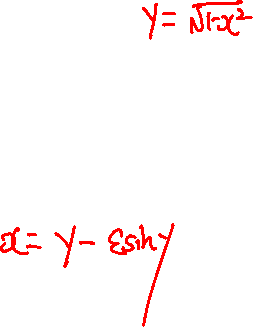 y = √1-x²
x = y - εsiny